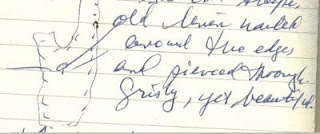 old linen nailed
around the edges
and pierced through.
Grisly, yet beautiful.